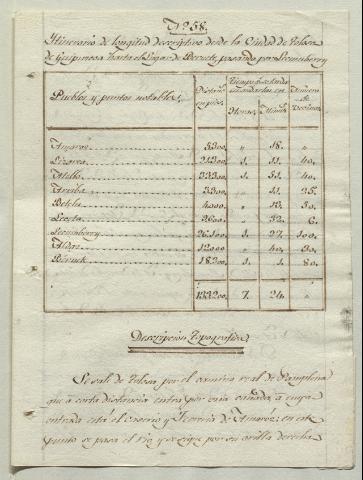 Nº 58.
Itinerario de longitud descriptivo desde la Ciudad de Tolosa
de Guipuzcoa hasta el Lugar de Beruete, pasando por Lecumberry
Pueblos y puntos notables.
Distan.ª en pies.
Tiempo
Horas.
Minut.s
Número de Vecinos.
Amaroz 5300. „ 18. „
Lizarza 1. 11. 40.
Atallo 1. 51. 40.
Arriba 3300. „ 11. 25.
Betelu 4000. „ 13. 50.
Leceta 2600. „ 32. 6.
Lecumberry 26100. 1. 27. 100.
Aldaz 12000 „ 40. 30.
Beruete 18200. 1. 1. 80.
133200. 7. 24. „
Descripcion Topografica
Se sale de Tolosa por el camino real de Pamplona
que á corta distancia entra por una cañada, á cuya
entrada está el caserio y Ferreria de Amaróz: en este
punto se pasa el Rio y se sigue por su orilla derecha